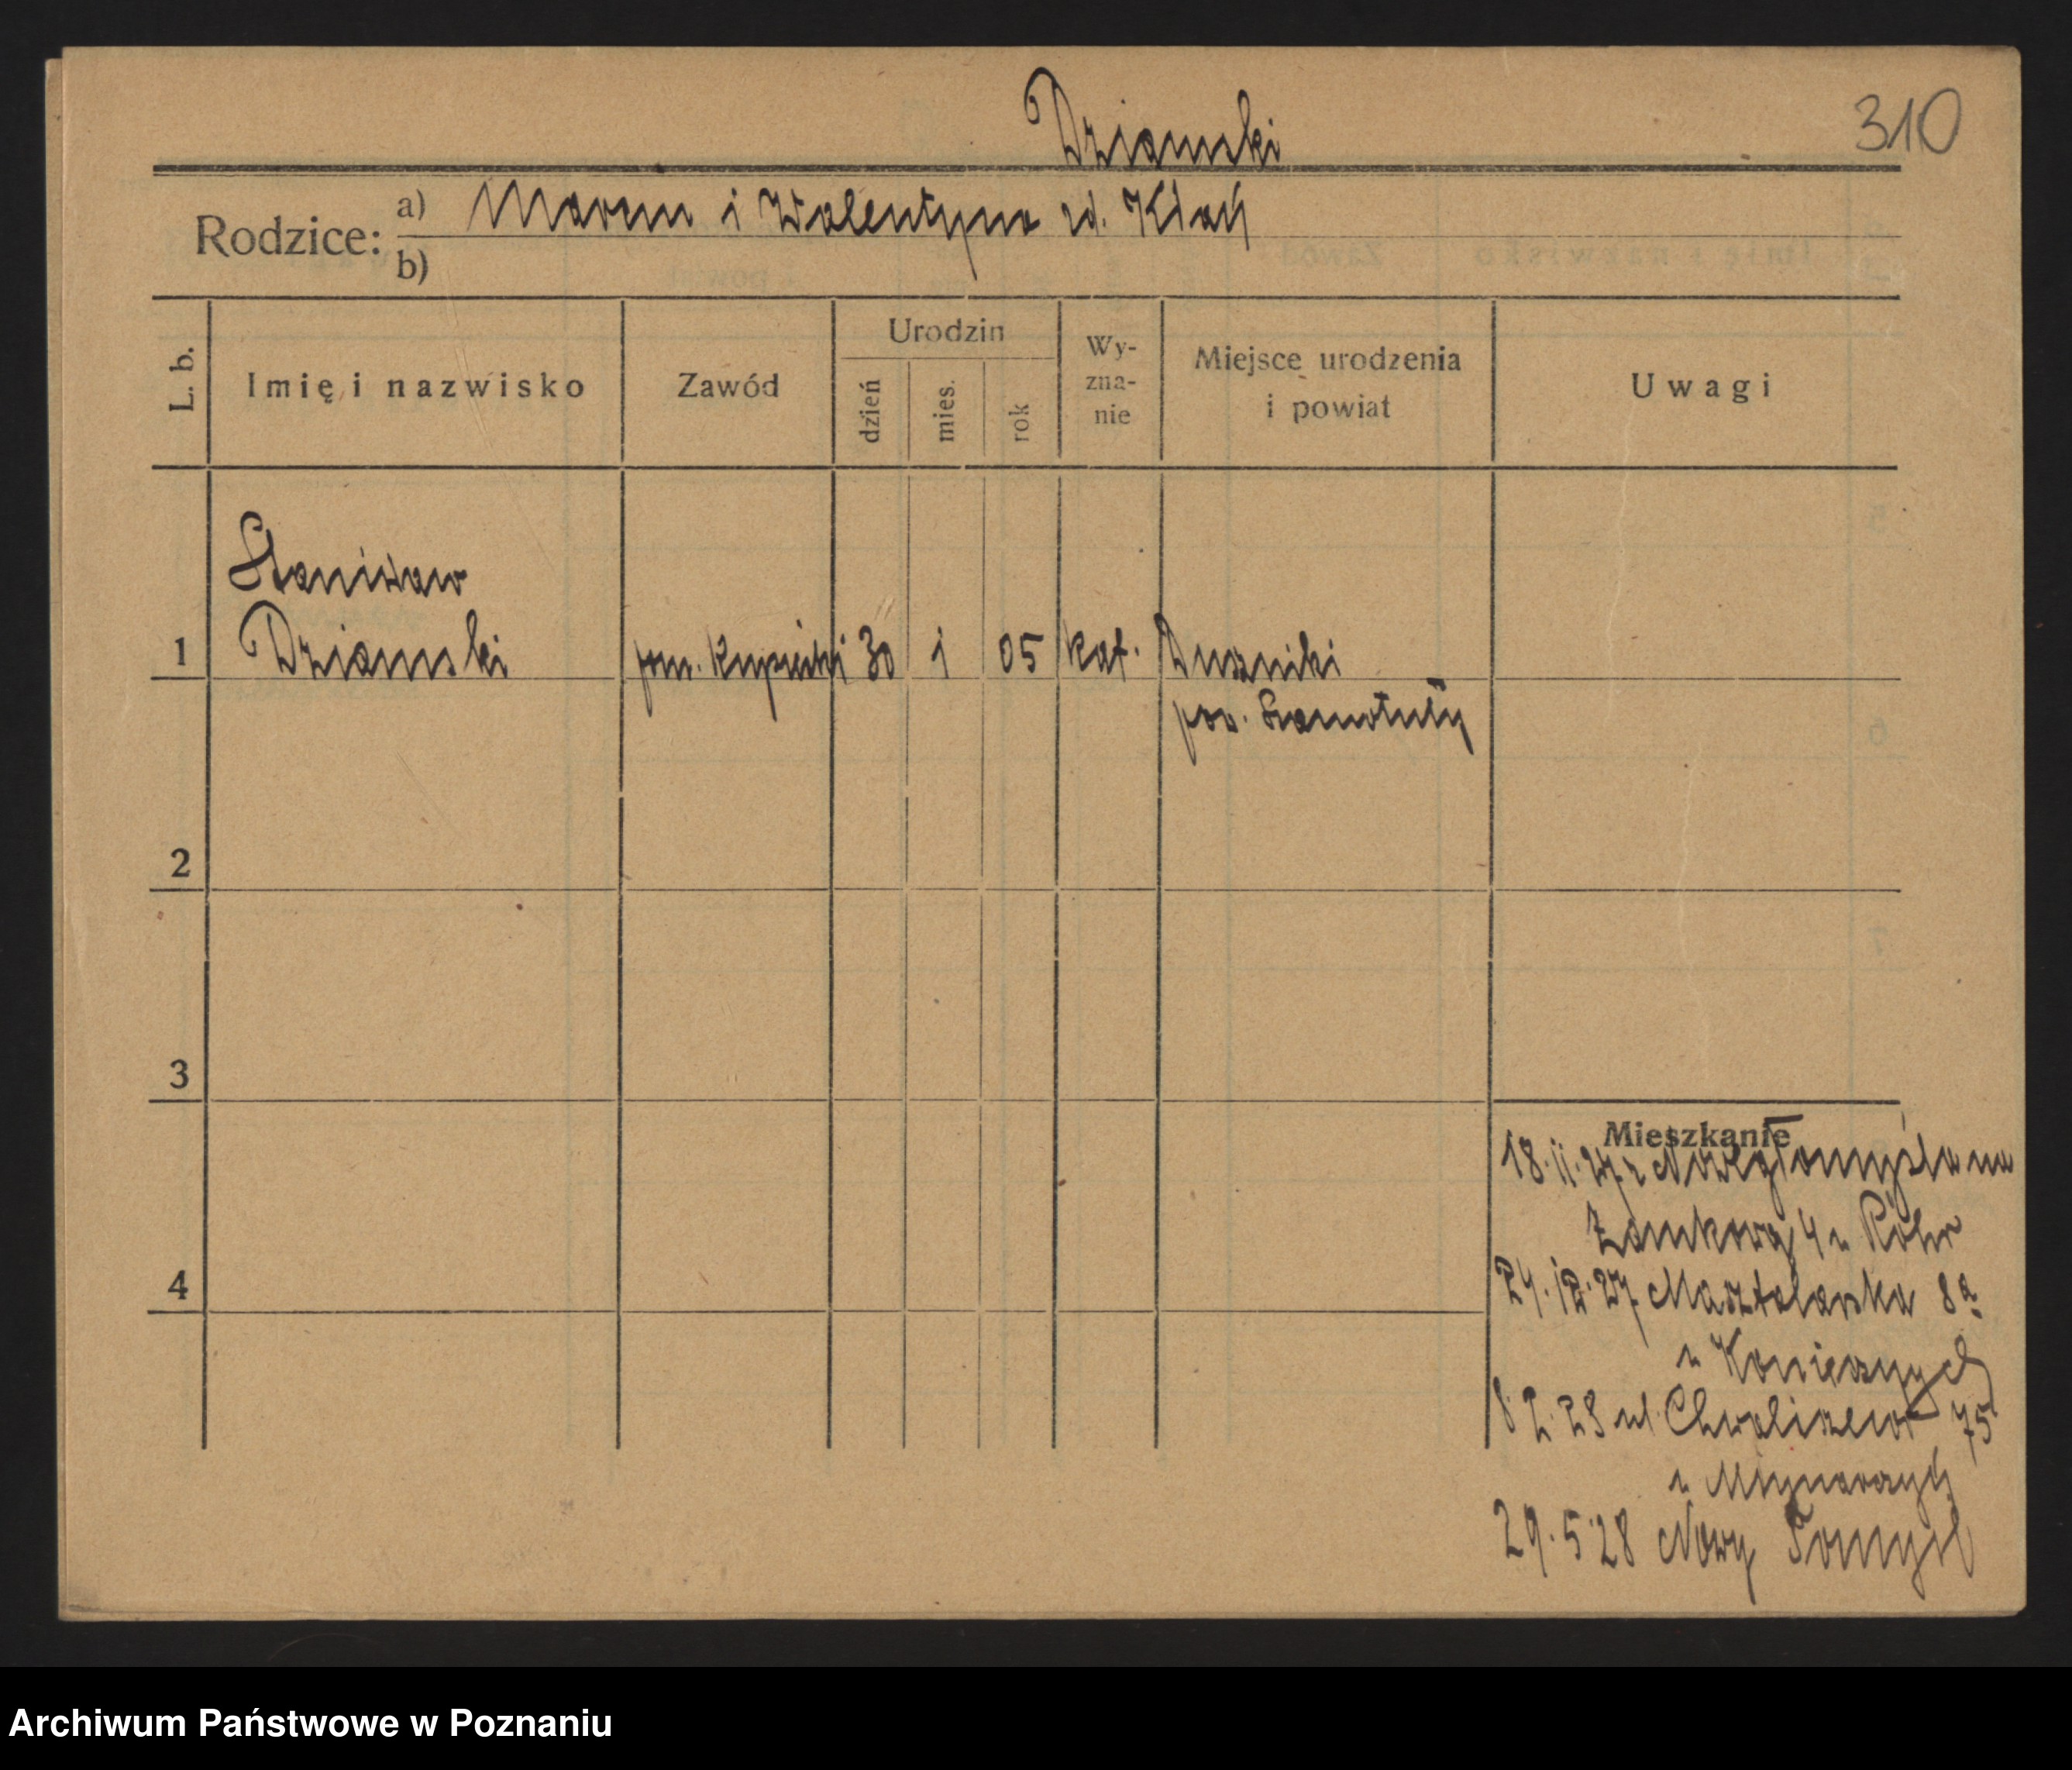 Dziamski
310
Rodzice:
a) Marcin i Walentyna zd. Kłak
b)
L. b.
Imię i nazwisko
Zawód
Urodzin
dzień
mies.
rok
Wy-
zna-
nie
Miejsce urodzenia
i powiat
Uwagi
Stanisław
1 Dziamski pom. kupiecki 30 1 05 kat. Duszniki
pow. Szamotuły
2
3
4
Mieszkanie
18.11.27 z Nowegotomyśla na
Zamkową 4 u Röhr
24.12.27 Masztalarska 8a
u Koniecznych
8.2.28 ul. Chwaliszewo 75
u Młynarczyk
29.5.28 Nowy Tomyśl
Archiwum Państwowe w Poznaniu